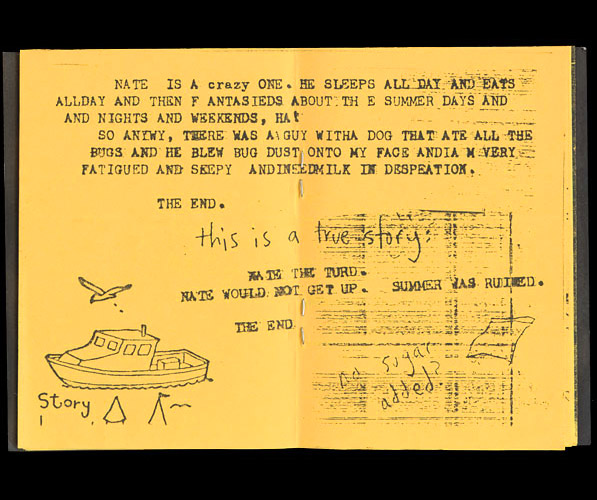 NATE IS A crazy ONE. HE SLEEPS ALL DAY AND EATS
ALLDAY AND THEN F ANTASIEDS ABOUT TH E SUMMER DAYS AND
AND NIGHTS AND WEEKENDS, HAt
SO ANYWY, THERE WAS A GUY WITHA DOG THAT ATE ALL THE
BUGS AND HE BLEW BUG DUST ONTO MY FACE ANDIA M VERY
FATIGUED AND SEEPY ANDINEEDMILK IN DESPEATION.
THE END.
this is a true story:
NATE THE TURD.
NATE WOULD NOT GET UP. SUMMER WAS RUINED.
THE END
sugar
added?
Story
1